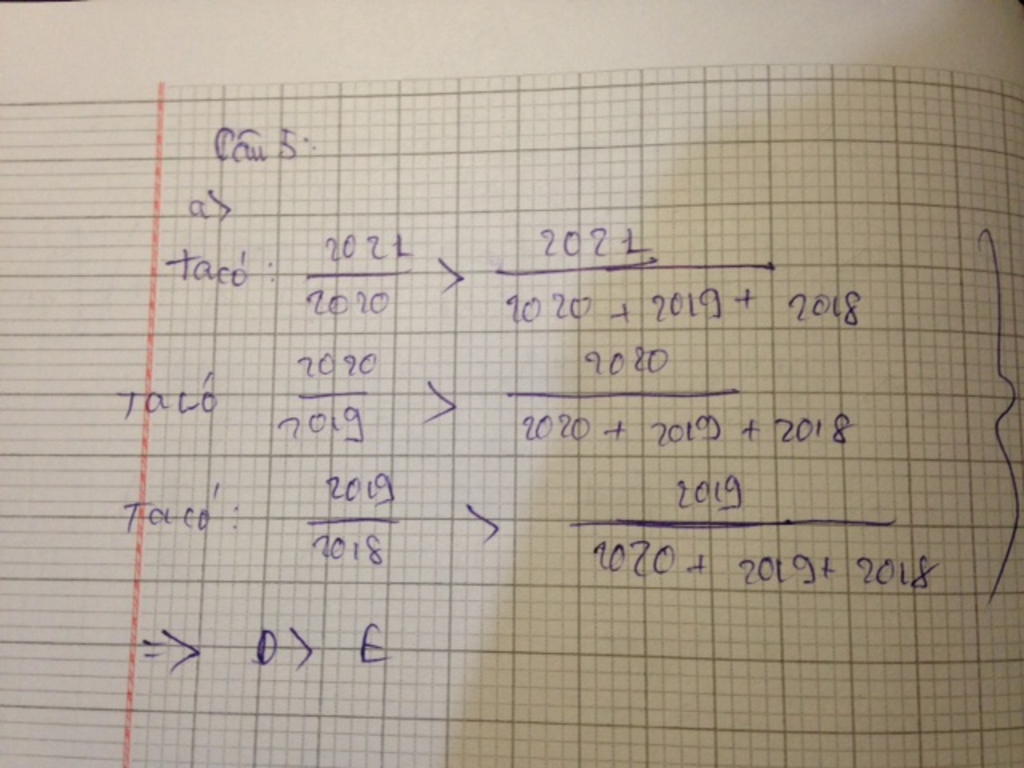 Câu 5:
a>
Ta có: 2021/2020 > 2021/(2020 + 2019 + 2018)
Ta có 2020/2019 > 2020/(2020 + 2019 + 2018)
Ta có: 2019/2018 > 2019/(2020 + 2019 + 2018)
=> D > E